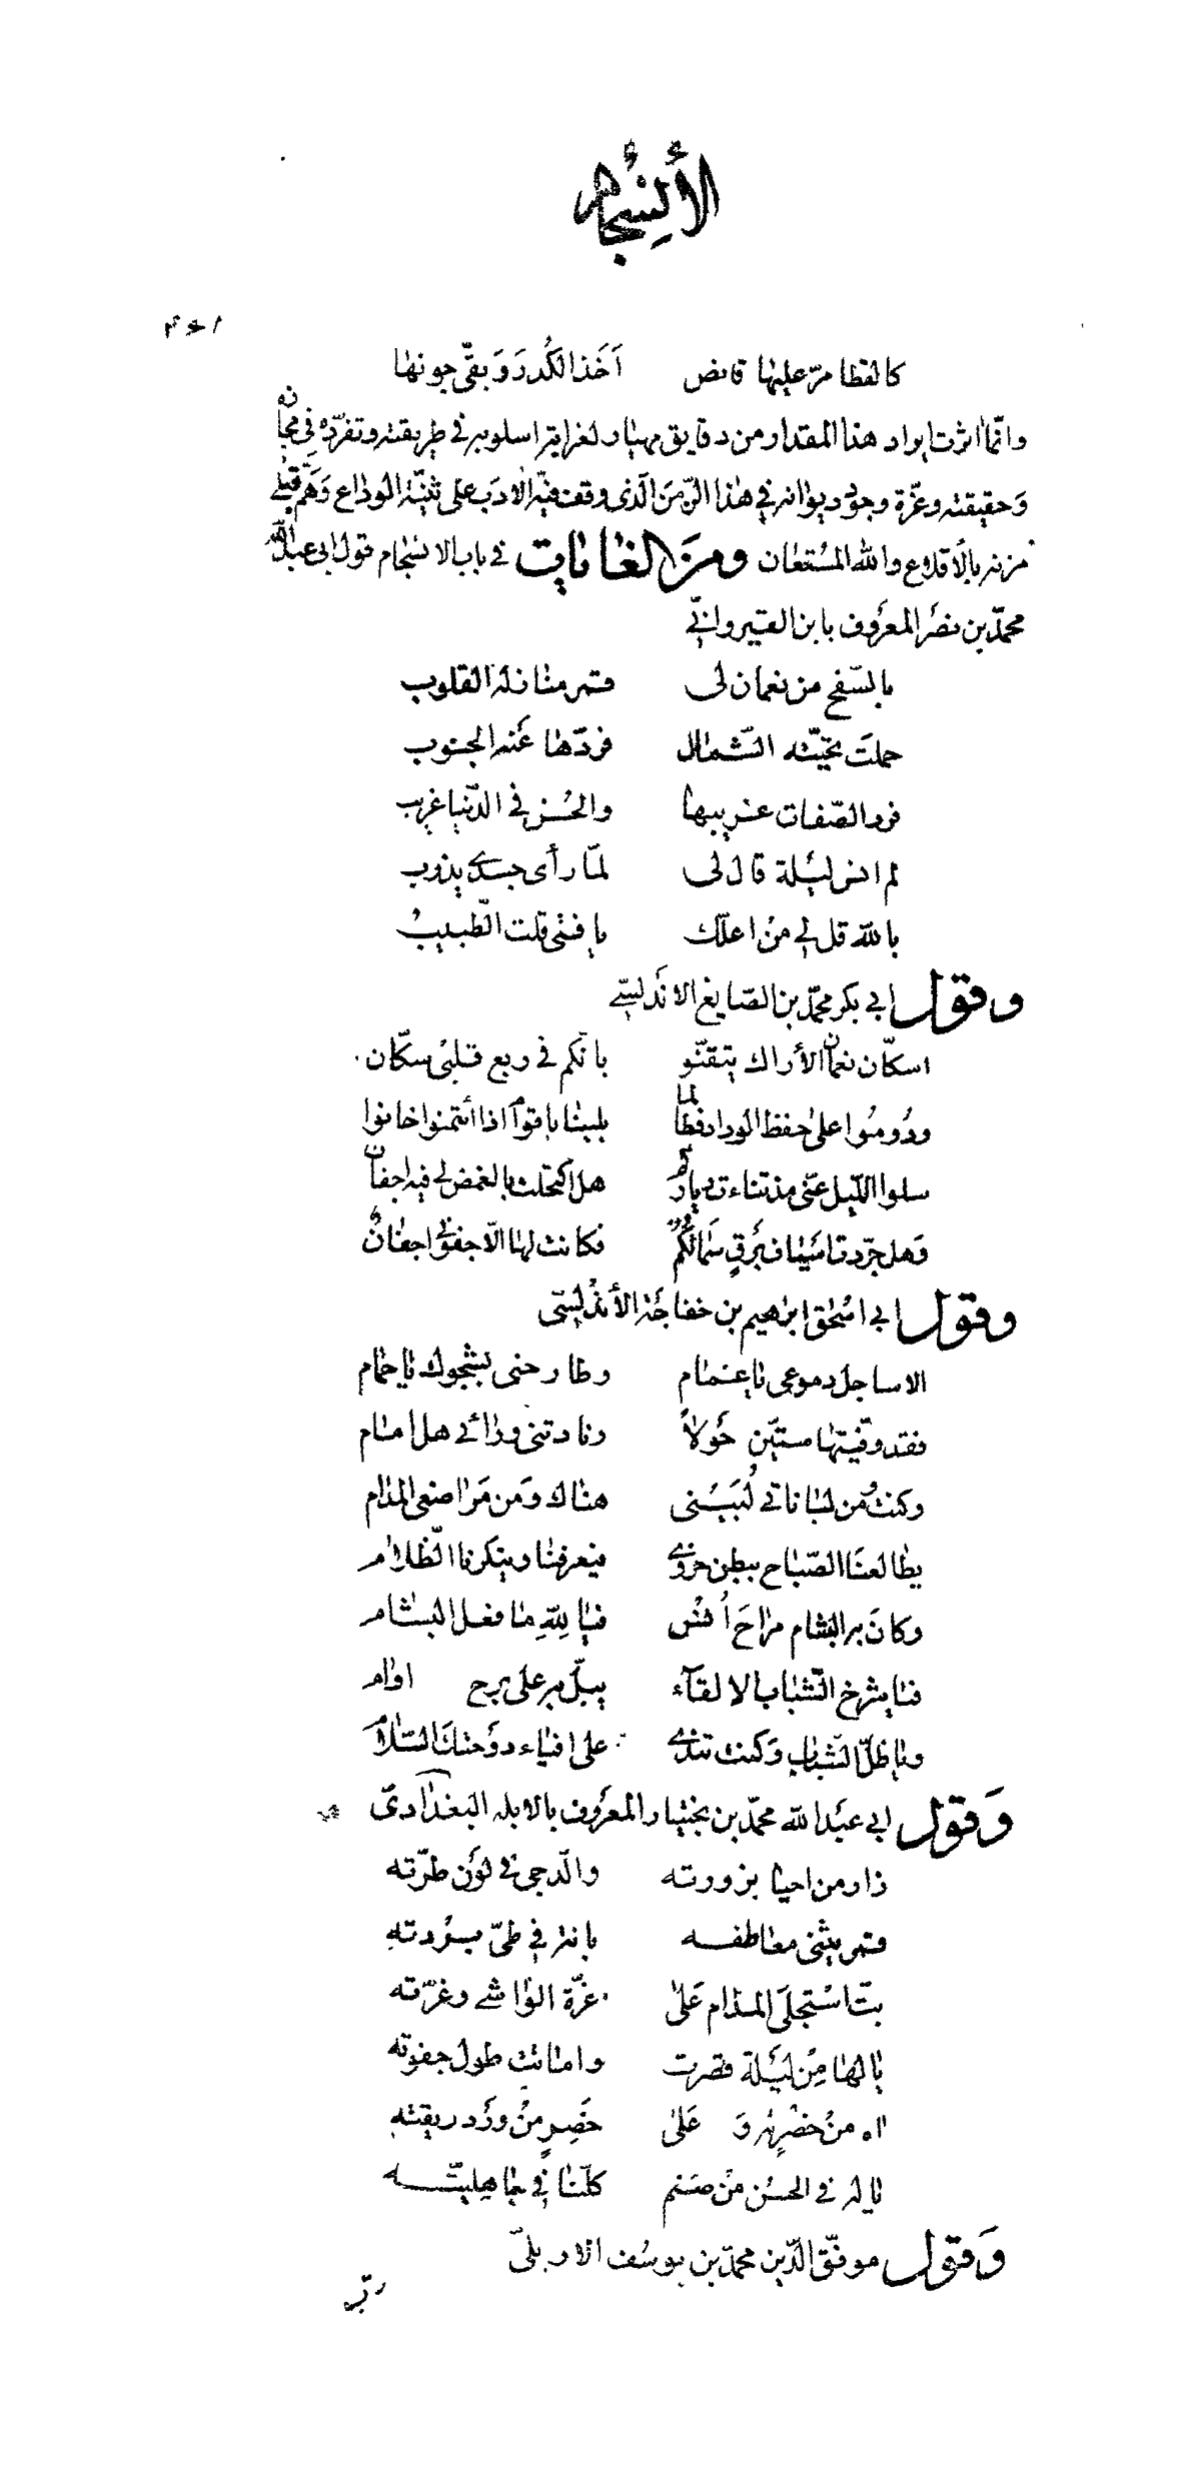 الأنسجام
٤٠١
كالقطا مرّ عليها قابض أخَذ الكُدرَ وَبقّى جونها
وانّما اثرت ايراد هذا المقدار من دقايق مهيار لغرابة اسلوبه في طريقته وتفرّده في مجازه
وَحقيقته وعزّة وجود ديوانه في هذا الزّمن الّذى وقف فيه الادَب على ثنيّة الوداع وَهَم قبلي
مزنه بالاقلاع والله المُستعان ومن الغايات في باب الانسجام قول ابى عبد اللّه
محمّد بن نصَر المعرُوف بابن القيروانيّ
بالسّفح من نعمان لى قمر منازله القلوب
حملت تحيّته الشّمال فردّها عَنه الجنوب
فرد الصّفات غريبها والحُسن في الدّنيا غريب
لم انس ليلة قال لى لمّا رأى جسدي يذوب
باللّه قل لي منُ اعلّك يا فتى قلت الطّبيبُ
وقول ابي بكر محمّد بن الصّايغ الاندَلسيّ
اسكّان نعمان الأراك تيقّنو بانّكم في ربع قلبى سكّان
ودُومُوا على حفظ الوداد فطالما بلينا باقوام اذا ائتمنوا خانوا
سلوا اللّيل عنّى مذ تناءت دياركم هل اكتحلت بالغمض لى فيه اجفان
وَهل جرّدت اسَياف بَرقٍ سَمائكُم فكانت لها الّا جفوني اجفان
وقول ابي اسُحق ابرهيم بن خفاجَة الأندُلسيّ
الا ساجل دموعى يا غمام وطارحنى بشجوك يا حمام
فقد وفّيتها ستّين حَولاً ونادتنى ورائي هل امام
وكنتُ ومن لباناتي لُبَينى هناك وَمن مَراضعى المدام
يطالعنَا الصّباح ببطن حزوى فيعرفنا وينكرنا الظّلام
وكانَ به البشام مراحَ اُنس فيا لِلّهِ ما فعل البشام
فيا شرخ الشّباب الا لقآء يبلّ به على برح اوام
ويا ظلّ الشّباب وَكنت تندى على افياء دوَحتك السّلام
وَقول ابي عبَد اللّه محمّد بن بختيار المعرُوف بالابله البَغدادىّ
زار من احيا بزورته والدّجى في لوَن طرّته
قمر يثنى معاطفه بانة في طىّ بُردتهِ
بتّ استجلى المدام عَلى غرّة الواشي وغرّته
يا لها مِن ليَلة قصرت واماتت طول جفوته
اه منُ خصَرٍ له وَ عَلى خَصِرٍ منُ ورَد ريقته
يا له في الحسُن من صَنم كلّنا في جاهليّته
وَقول موفّق الدّين محمّد بن يوسُف الاربلىّ